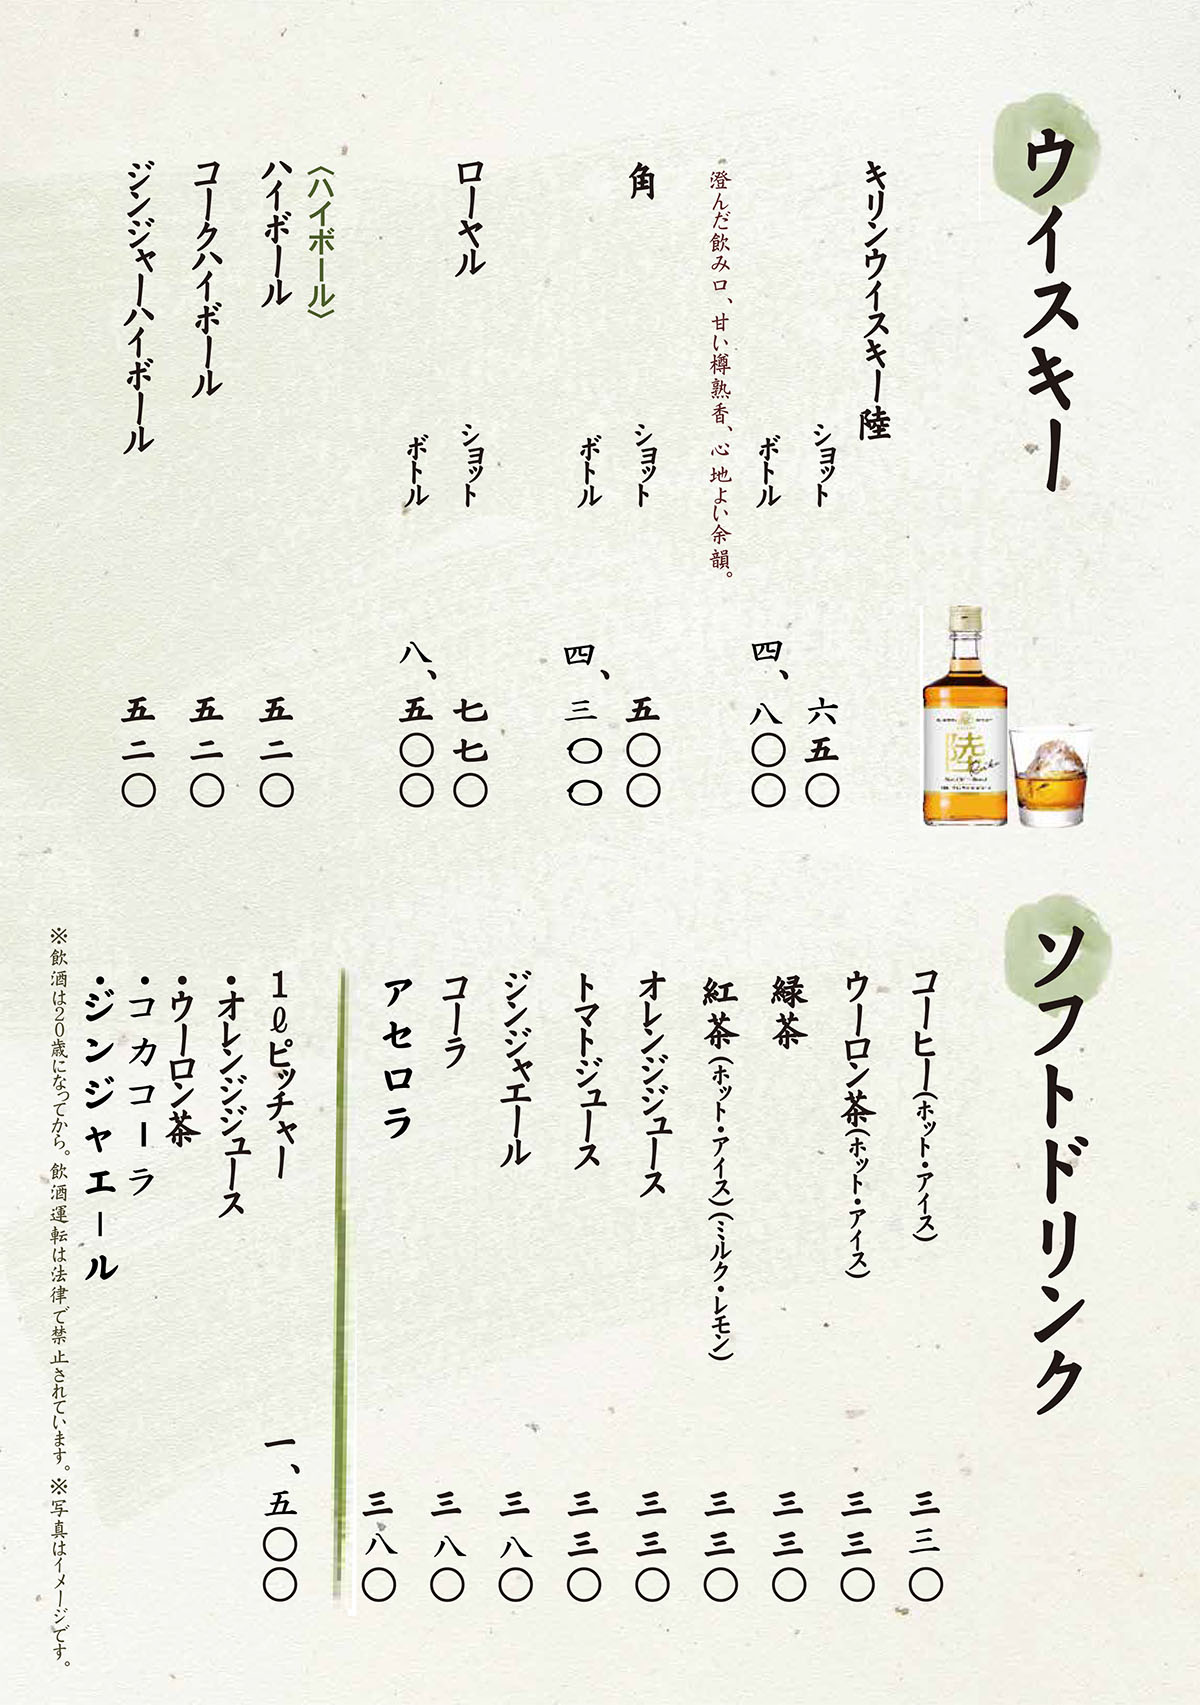 ウイスキー
キリンウイスキー陸
ショット 六五〇
ボトル 四、八〇〇
澄んだ飲み口、甘い樽熟香、心地よい余韻。
角
ショット 五〇〇
ボトル 四、三〇〇
ローヤル
ショット 七七〇
ボトル 八、五〇〇
〈ハイボール〉
ハイボール 五二〇
コークハイボール 五二〇
ジンジャーハイボール 五二〇
陸
ソフトドリンク
コーヒー(ホット・アイス) 三三〇
ウーロン茶(ホット・アイス) 三三〇
緑茶 三三〇
紅茶(ホット・アイス)(ミルク・レモン) 三三〇
オレンジジュース 三三〇
トマトジュース 三三〇
ジンジャエール 三八〇
コーラ 三八〇
アセロラ 三八〇
1ℓピッチャー 一、五〇〇
・オレンジジュース
・ウーロン茶
・コカコーラ
・ジンジャエール
※飲酒は20歳になってから。飲酒運転は法律で禁止されています。※写真はイメージです。